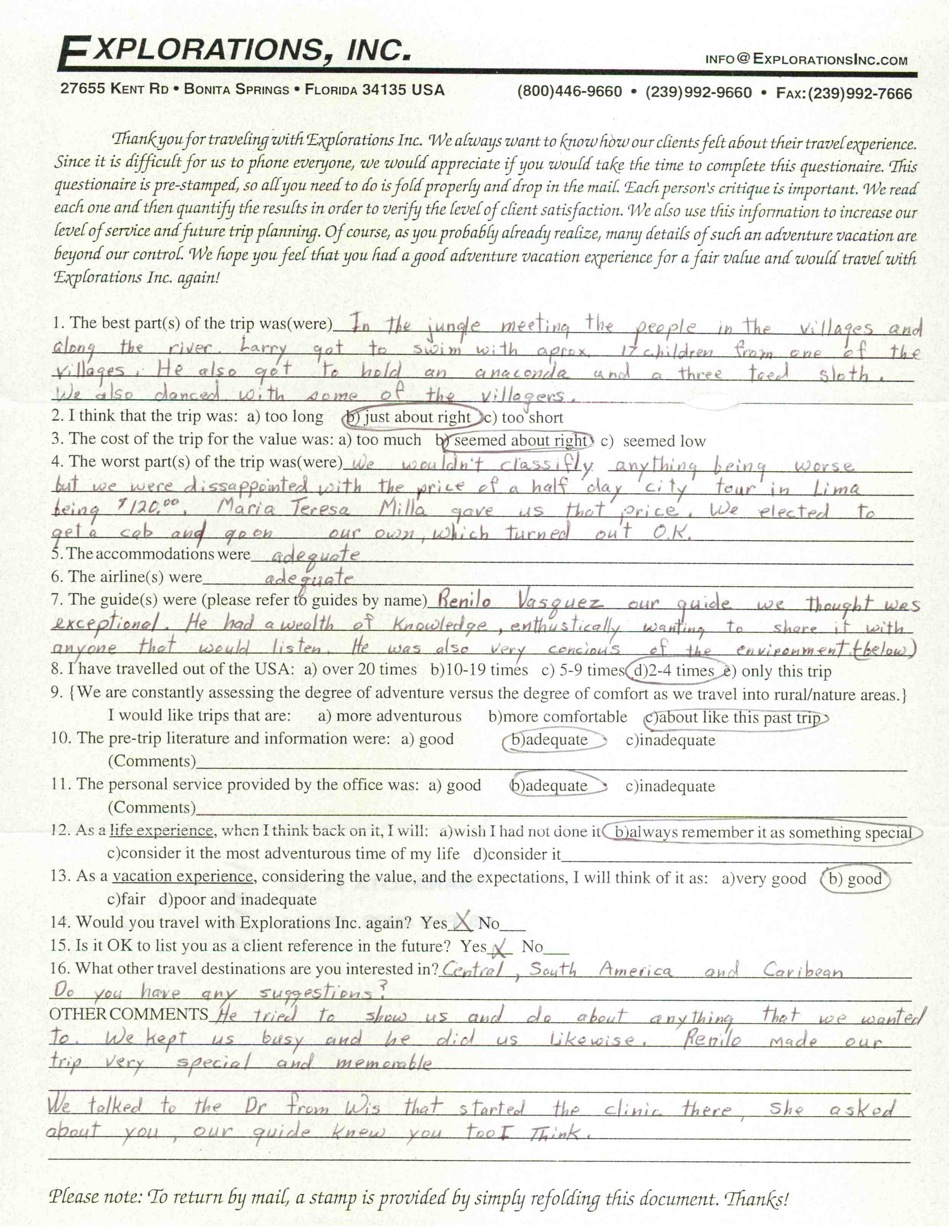 EXPLORATIONS, INC.
INFO@EXPLORATIONSINC.COM
27655 KENT RD • BONITA SPRINGS • FLORIDA 34135 USA
(800)446-9660 • (239)992-9660 • FAX:(239)992-7666
Thank you for traveling with Explorations Inc. We always want to know how our clients felt about their travel experience.
Since it is difficult for us to phone everyone, we would appreciate if you would take the time to complete this questionaire. This
questionaire is pre-stamped, so all you need to do is fold properly and drop in the mail. Each person's critique is important. We read
each one and then quantify the results in order to verify the level of client satisfaction. We also use this information to increase our
level of service and future trip planning. Of course, as you probably already realize, many details of such an adventure vacation are
beyond our control. We hope you feel that you had a good adventure vacation experience for a fair value and would travel with
Explorations Inc. again!
1. The best part(s) of the trip was(were) In the jungle meeting the people in the villages and
along the river. Larry got to swim with aprox. 17 children from one of the
villages. He also got to hold an anaconda and a three toed sloth.
We also danced with some of the villagers.
2. I think that the trip was: a) too long b) just about right c) too short
3. The cost of the trip for the value was: a) too much b) seemed about right c) seemed low
4. The worst part(s) of the trip was(were) We wouldn't classifly anything being worse
but we were dissappointed with the price of a half day city tour in Lima
being $120.00. Maria Teresa Milla gave us that price. We elected to
get a cab and go on our own, which turned out O.K.
5. The accommodations were adequate
6. The airline(s) were adequate
7. The guide(s) were (please refer to guides by name) Renilo Vasquez our guide we thought was
exceptional. He had a wealth of Knowledge, enthustically wanting to share it with
anyone that would listen. He was also very concious of the environment. (below)
8. I have travelled out of the USA: a) over 20 times b)10-19 times c) 5-9 times d)2-4 times e) only this trip
9. {We are constantly assessing the degree of adventure versus the degree of comfort as we travel into rural/nature areas.}
I would like trips that are: a) more adventurous b)more comfortable c)about like this past trip
10. The pre-trip literature and information were: a) good b)adequate c)inadequate
(Comments)
11. The personal service provided by the office was: a) good b)adequate c)inadequate
(Comments)
12. As a life experience, when I think back on it, I will: a)wish I had not done it b)always remember it as something special
c)consider it the most adventurous time of my life d)consider it
13. As a vacation experience, considering the value, and the expectations, I will think of it as: a)very good b) good
c)fair d)poor and inadequate
14. Would you travel with Explorations Inc. again? Yes X No
15. Is it OK to list you as a client reference in the future? Yes X No
16. What other travel destinations are you interested in? Central, South America and Caribean
Do you have any suggestions?
OTHER COMMENTS He tried to show us and do about anything that we wanted
to. We kept us busy and he did us likewise. Renilo made our
trip very special and memorable
We talked to the Dr from Wis that started the clinic there, she asked
about you, our guide knew you too I think.
Please note: To return by mail, a stamp is provided by simply refolding this document. Thanks!